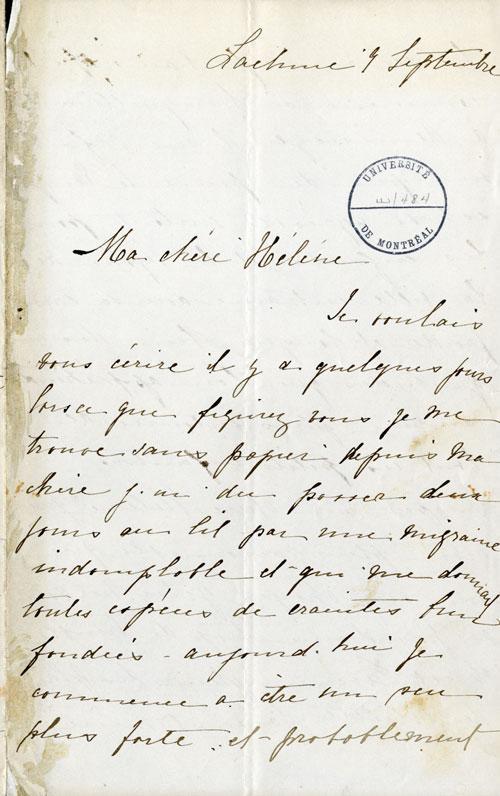 Lachine 9 Septembre
UNIVERSITÉ
1484
DE MONTRÉAL
Ma chère Hélène
Je voulais
vous écrire il y a quelques jours
lorsce que figurez vous je me
trouve sans papier depuis ma
chère j'ai du passer deux
jours au lit par une migraine
indomptable et qui me donnait
toutes espéces de craintes
fondées - aujourd'hui je
commence a être un peu
plus forte et probablement